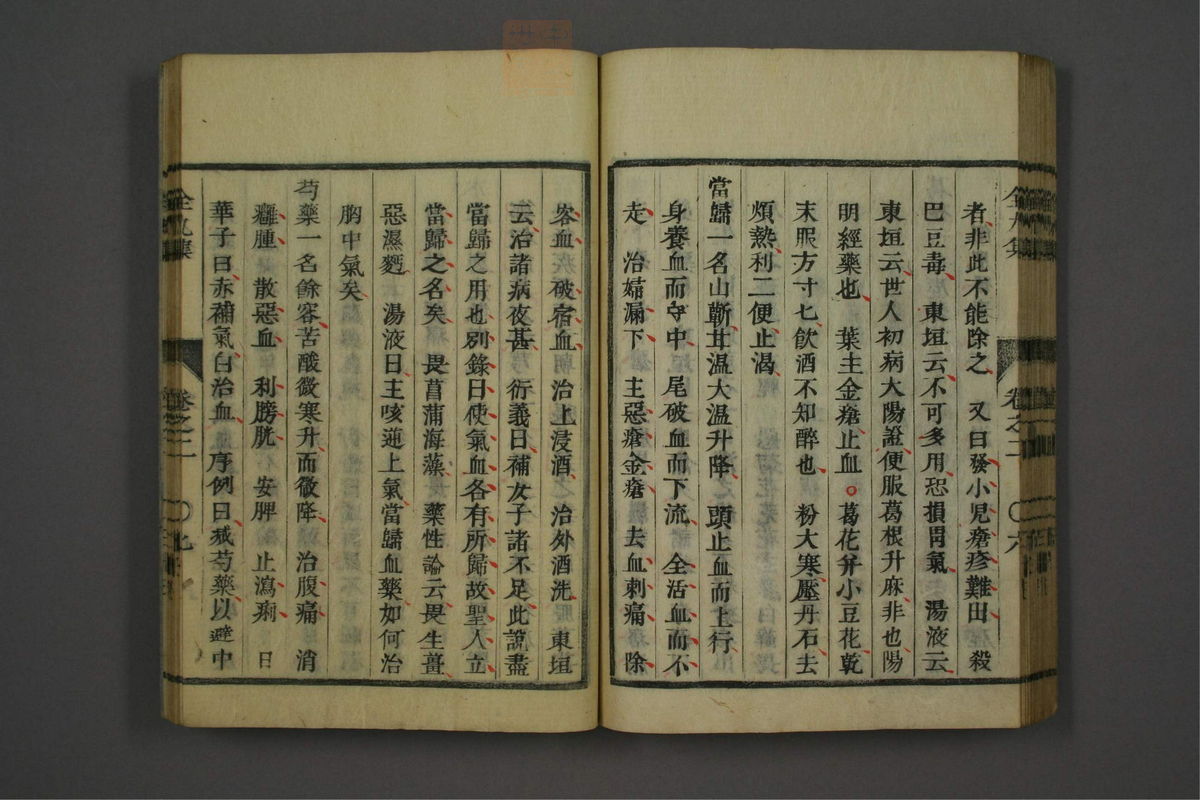 者非此不能除之　又曰發小兒瘡疹難出　殺
巴豆毒　東垣云不可多用恐損胃氣　湯液云
東垣云世人初病大陽證便服葛根升麻非也陽
明經藥也　葉主金瘡止血。葛花并小豆花乾
末服方寸匕飲酒不知醉也　粉大寒壓丹石去
煩熱利二便止渴
當歸一名山蘄甘溫大溫升降　頭止血而上行
身養血而守中　尾破血而下流　全活血而不
走　治婦漏下　主惡瘡金瘡　去血刺痛　除
客血疾破宿血　治上浸酒　治外酒洗　東垣
云治諸病夜甚　衍義曰補女子諸不足此說盡
當歸之用也別錄曰使氣血各有所歸故聖人立
當歸之名矣　畏菖蒲海藻　藥性論云畏生薑
惡濕麪　湯液曰主咳逆上氣當歸血藥如何治
胸中氣矣
芍藥一名餘容苦酸微寒升而微降　治腹痛　消
癰腫　散惡血　利膀胱　安脾　止瀉痢　日
華子曰赤補氣白治血　序例曰減芍藥以避中
全九集
卷之二
〇六
全九集
卷之二
〇七